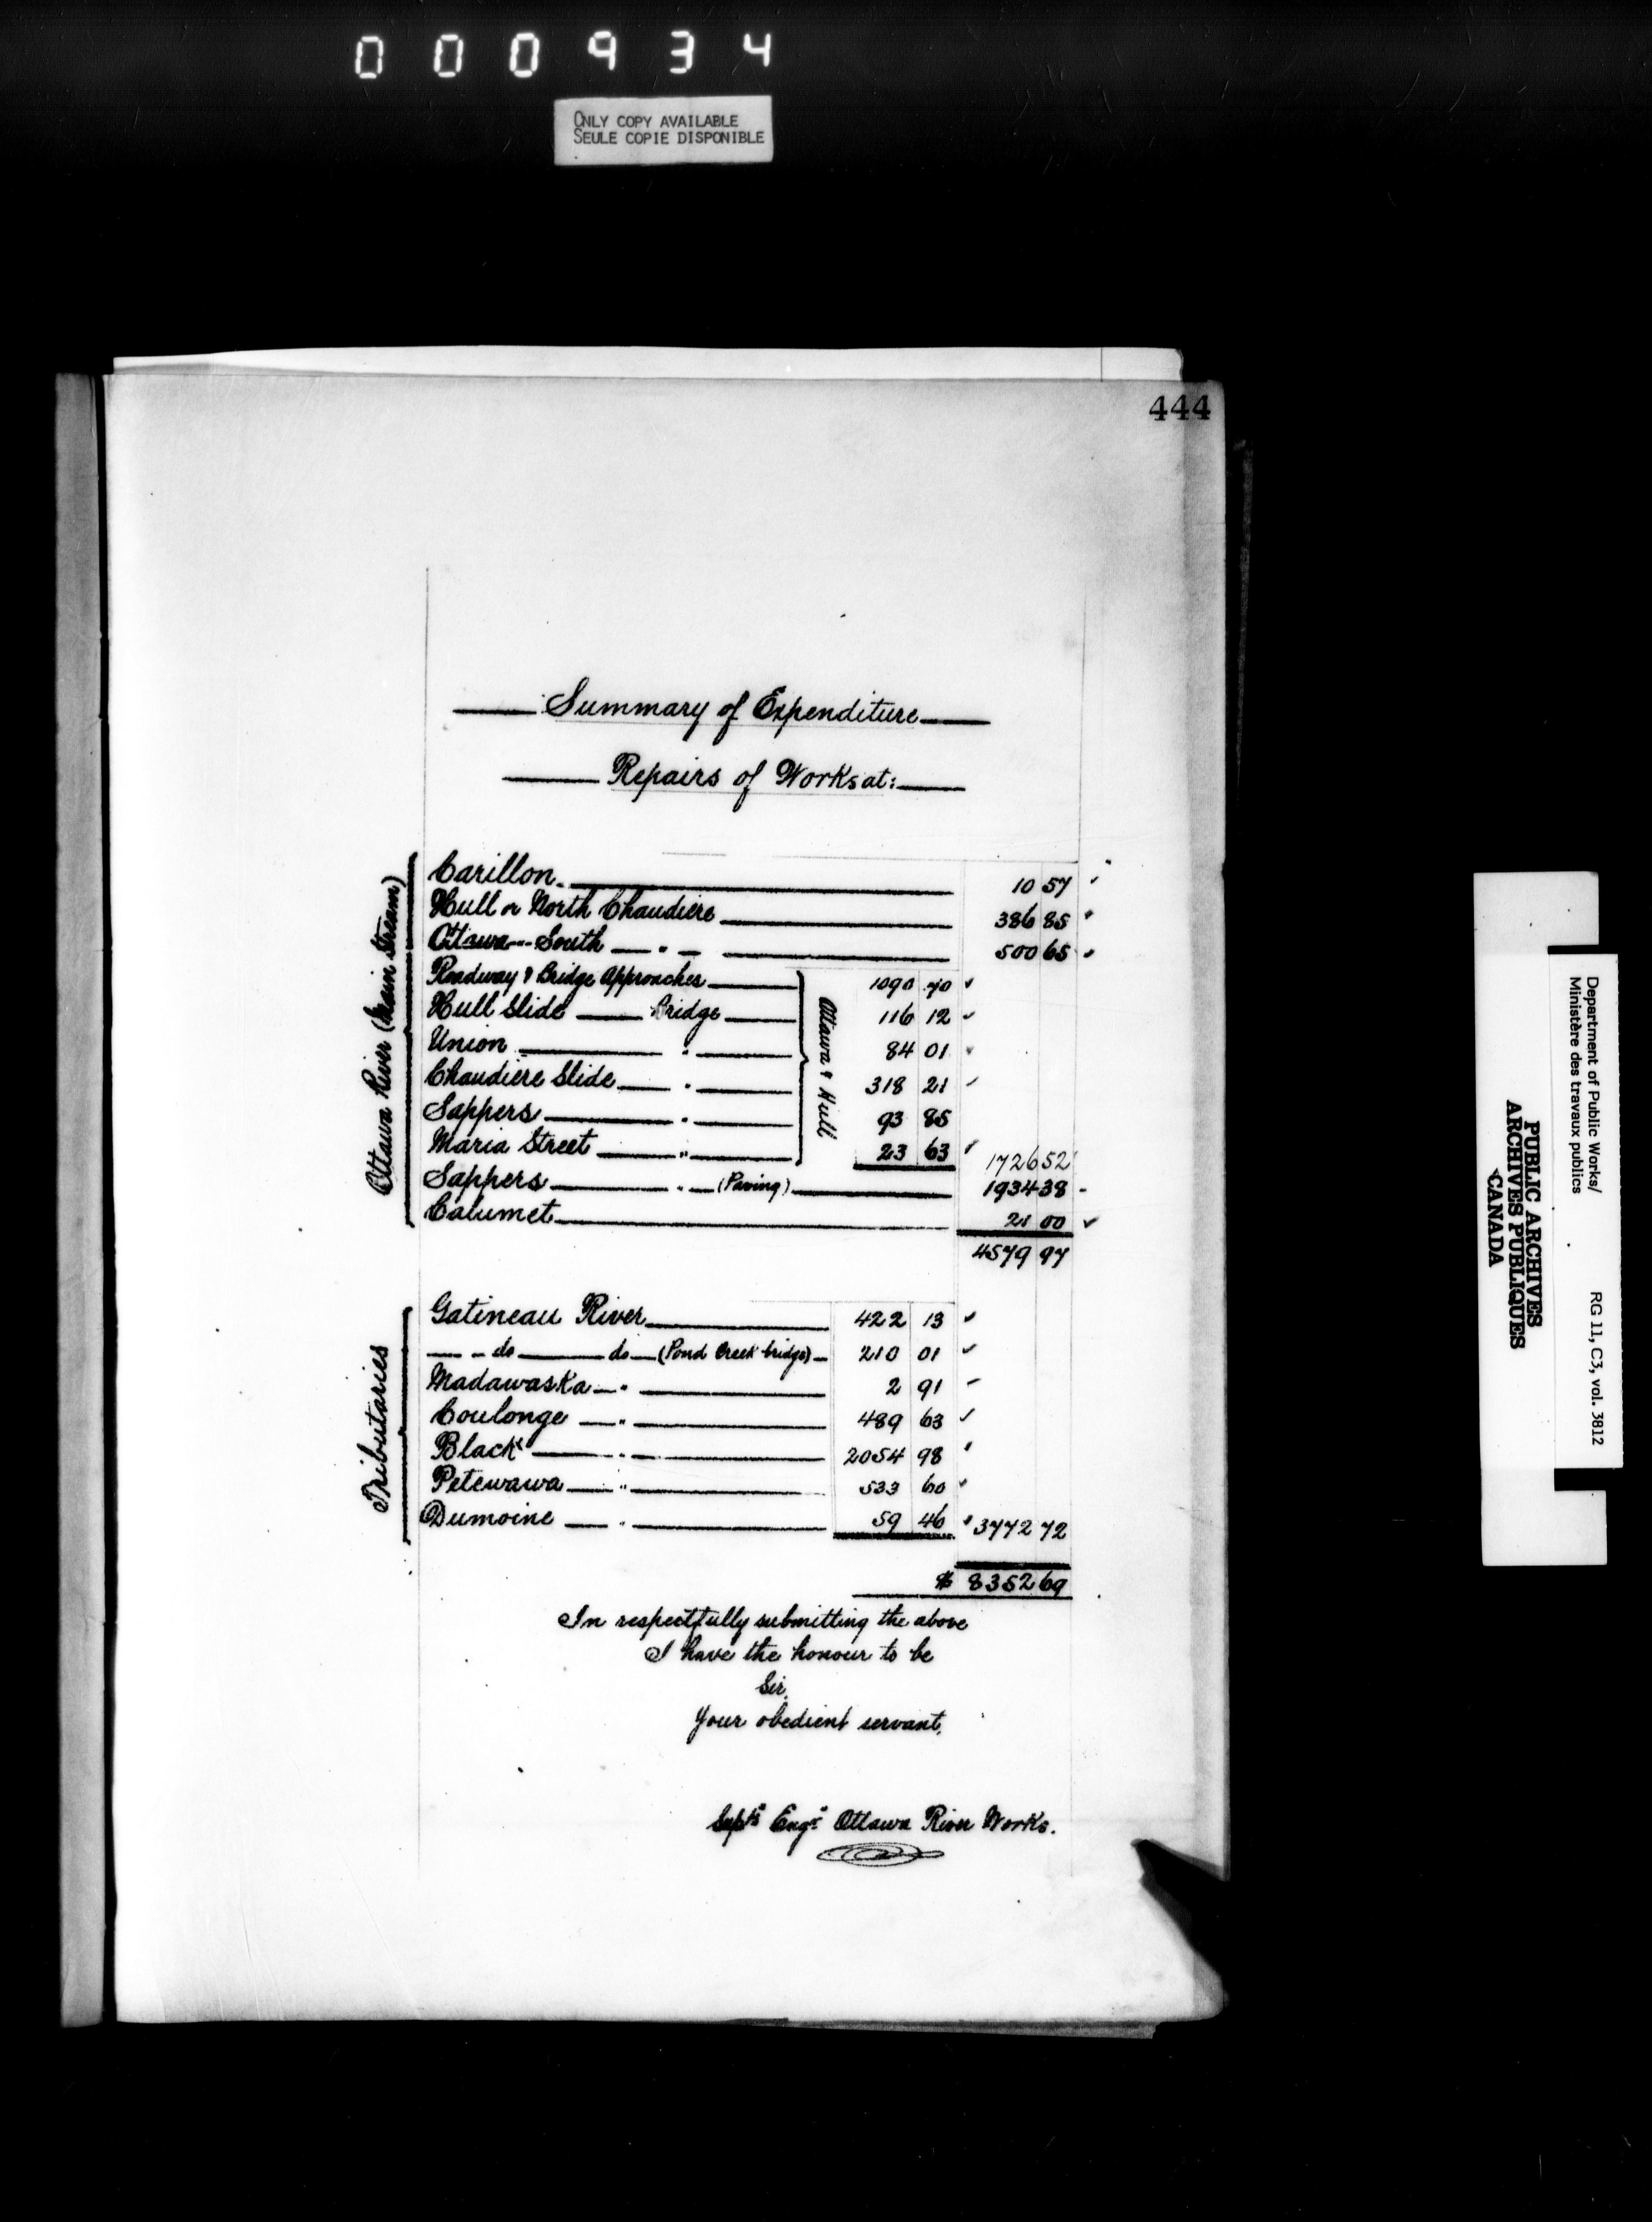 000934
ONLY COPY AVAILABLE
SEULE COPIE DISPONIBLE
444
Summary of Expenditure
Repairs of Works at:
Ottawa River (Main Stream)
Carillon 10 57
Hull or North Chaudiere 386 85
Ottawa South " 500 65
Roadway & Bridge Approaches 1090 70
Hull Slide Bridge 116 12
Union " 84 01
Chaudiere Slide " 318 21
Sappers " 93 85
Maria Street " 23 63 1726 52
Ottawa & Hull
Sappers " (Paving) 1934 38
Calumet 21 00
4579 97
Tributaries
Gatineau River 422 13
" do do (Pond Creek bridge) 210 01
Madawaska " 2 91
Coulonge " 489 63
Black " 2054 98
Petewawa " 533 60
Dumoine " 59 46 3772 72
$ 8352 69
In respectfully submitting the above
I have the honour to be
Sir,
Your obedient servant,
Supt'g Engr Ottawa River Works.
Department of Public Works/
Ministère des travaux publics
RG 11, C3, vol. 3812
PUBLIC ARCHIVES
ARCHIVES PUBLIQUES
CANADA